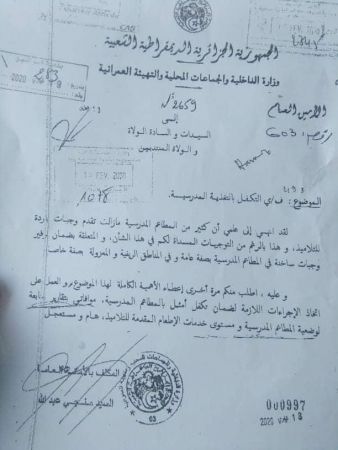 الجمهورية الجزائرية الديمقراطية الشعبية
وزارة الداخلية والجماعات المحلية والتهيئة العمرانية
2020
الأمين العام
2659
رقم: 603
إلى
السيدات و السادة الولاة
و الولاة المنتدبين
FEV. 2020
1078
الموضوع: ف/ي التكفل بالتغذية المدرسية.
لقد انهى إلى علمي أن كثير من المطاعم المدرسية مازالت تقدم وجبات باردة
للتلاميذ، و هذا بالرغم من التوجيهات المسداة لكم في هذا الشأن، و المتعلقة بضمان توفير
وجبات ساخنة في المطاعم المدرسية بصفة عامة و في المناطق الريفية و المعزولة بصفة خاصة
و عليه، اطلب منكم مرة أخرى إعطاء الأهمية الكاملة لهذا الموضوع، و العمل على
اتخاذ الإجراءات اللازمة لضمان تكفل أمثل بالمطاعم المدرسية، موافاتي بتقارير
لوضعية المطاعم المدرسية و مستوى خدمات الإطعام المقدمة للتلاميذ، هام و مستعجل
المكلف بالأمانة العامة
03
000997
2020